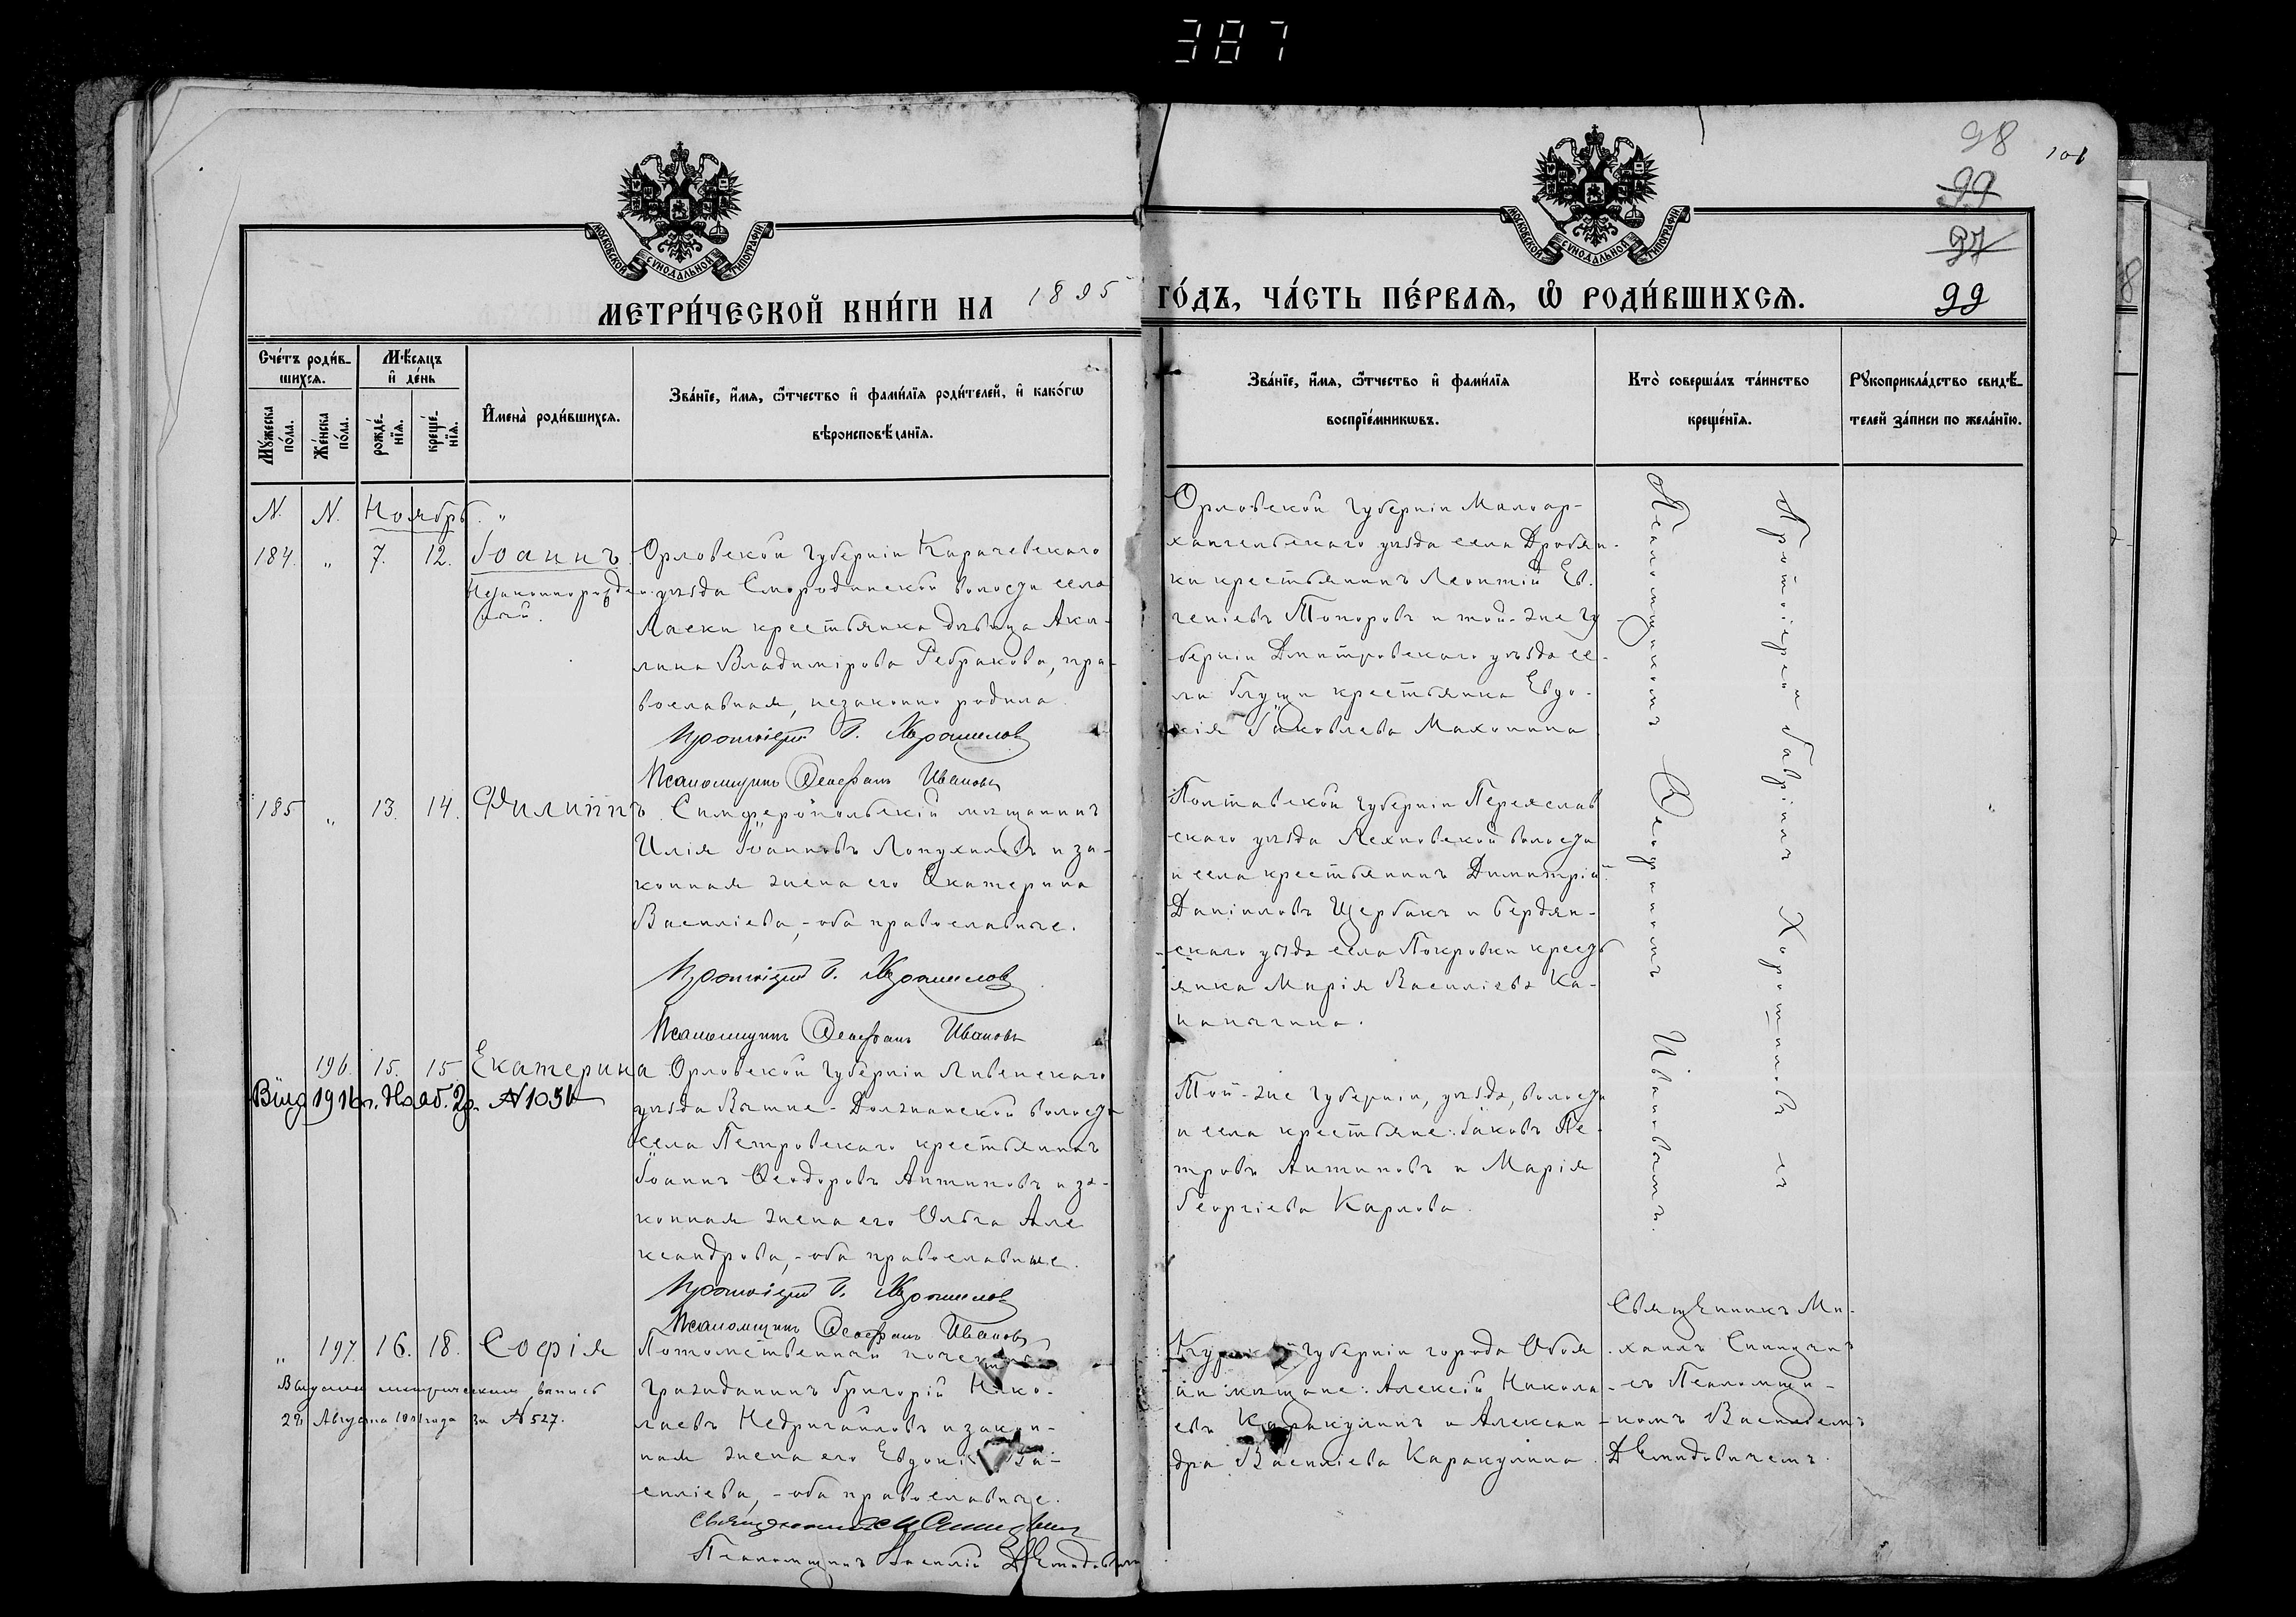 387
98
101
99
97
99
МОСКОВСКОЙ СѴНОДАЛЬНОЙ ТИПОГРАФІИ
МОСКОВСКОЙ СѴНОДАЛЬНОЙ ТИПОГРАФІИ
МЕТРИ́ЧЕСКОЙ КНИ́ГИ НА 1895
ГО́ДЪ, ЧА́СТЬ ПЕ́РВАѦ, Ѡ҆ РОДИ́ВШИХСѦ.
Сче́тъ роди́в-
шихсѧ.
Мꙋ́жеска по́ла.
Же́нска по́ла.
Мѣ́сѧцъ
и҆ де́нь
рожде́нїѧ.
креще́нїѧ.
И҆мена̀ роди́вшихсѧ.
Зва́нїе, и҆́мѧ, ѻ҆́тчество и҆ фами́лїѧ роди́телей, и҆ како́гѡ
вѣроисповѣ́данїѧ.
Зва́нїе, и҆́мѧ, ѻ҆́тчество и҆ фами́лїѧ
воспрїе́мникѡвъ.
Кто̀ соверша́лъ та́инство
креще́нїѧ.
Рꙋкоприкла́дство свидѣ́-
телей за́писи по жела́нїю.
N. N. Ноябрь. "
184. " 7. 12. Іоаннъ
Незаконнорожден
ный.
Орловской губерніи Карачевскаго
уѣзда Смородинской волости села
Ласки крестьянка дѣвица Аки-
лина Владимірова Ребракова, пра-
вославная, незаконно родила.
Протоіерей Г. Хорошилов
Псаломщикъ Ѳеофанъ Ивановъ
Орловской губерніи Малоар-
хангельскаго уѣзда села Дробян-
ки крестьянинъ Леонтій Ев.
геніевъ Топоровъ и той-же гу
берніи Дмитровскаго уѣзда се-
ла крестьянка Евдо-
кія Іаковлева Махонина
Псаломщикомъ Ѳеофаномъ Ивановымъ.
Протоіерей Гавріилъ Хорошиловъ съ
185 " 13. 14. Филиппъ
Симферопольскій мѣщанинъ
Илія Іоанновъ Лопухиловъ и за-
конная жена его Екатерина
Василіева,- оба православные.
Протоіерей Г. Хорошилов
Псаломщикъ Ѳеофанъ Ивановъ
Полтавской губерніи Переяслав
скаго уѣзда Лехновской волости
и села крестьянинъ Димитрій
Даніиловъ Щербакъ и бердян-
скаго уѣзда села Покровки кресть
янка Марія Василіева Ка-
196. 15. 15 Екатерина
1916 г. № 1051
Орловской губерніи Ливенскаго
уѣзда Вышне-Должанской волости
села Петровскаго крестьянинъ
Іоаннъ Ѳеодоровъ Антиповъ и за-
конная жена его Ольга Але
ксандрова,- оба православные.
Протоіерей Г. Хорошилов
Псаломщикъ Ѳеофанъ Ивановъ
Той-же губерніи, уѣзда, волости
и села крестьяне: Іаковъ Пе-
тровъ Антиповъ и Марія
Георгіева Карлова.
" 197. 16. 18. Софія
Выдана метрическая выпись
Августа года за № 527.
Потомственный почетный
гражданинъ Григорій Нико-
лаевъ Недригайловъ и закон-
ная жена его Евдокія Ва-
силіева,- оба православные.
Священникъ М Спицынъ
Псаломщикъ Василій Демидович
Курской губерніи города Обоя
ни мѣщане: Алексій Никола
евъ Каракулинъ и Алексан
дра Василіева Каракулина.
Священникъ Ми-
хаилъ Спицынъ
съ Псаломщи-
комъ Василіемъ
Демидовичемъ.